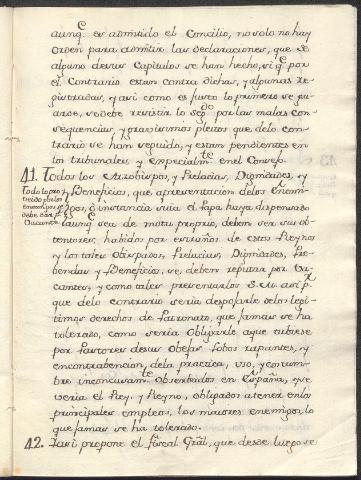 aunq.e es admitido el Concilio, no solo no hay
orden para admitir las declaraciones, que de
alguno desus Capitulos se han hecho, si q.e por
el Contrario estan contra dichas, y algunas re-
gistradas, y asi como es justo lo primero se gu-
arde, se debe resistir lo seg.do por las malas con-
sequencias, y gravisimos pleitos que delo con-
trario se han seguido, y estan pendientes en
los tribunales y especialm.te enel Consejo.
41. Todos los Arzobispos, y Prelacias, Dignidades, y
Beneficios, que apresentacion delos Enemi-
gos, ó instancia suia el Papa huya dispensado
aunq.e sea de motu proprio, deben ser sus ob-
tentores, habidos por estraños de estos Reynos
y los tales Obispados, Prelacias, Dignidades, Pre-
bendas y Beneficios, se deben reputar por Va-
cantes, y como tales presentarlos S. M. asi p.r
que delo contrario seria despojarle delos legi-
timos derechos de Patronato, que jamas se ha
tolerado, como seria Obligarle aque tubiese
por Pastores desus Obejas Lobos rapantes, y
encontrabencion, dela practica, uso, y costum-
bre inconcusam.te Observados en España, que
seria el Rey, y Reyno, obligados atener enlos
principales empleos, los maiores enemigos, lo
que jamas se ha tolerado.
42. Iasi propone el fiscal Gral, que desde luego se
Todo lo pro-
veido por los
enemigos se
debe dar p.r
Vacante